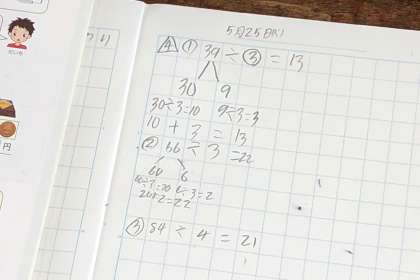 5月25日(火)
4 ① 39 ÷ ③ = 13
30 9
30÷3=10 9÷3=3
10 + 3 = 13
② 66 ÷ 3 = 22
60 6
60÷3=20 6÷3=2
20+2=22
③ 84 ÷ 4 = 21